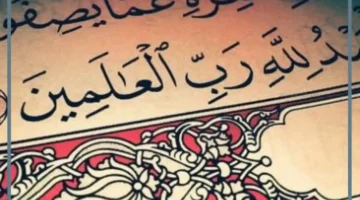 ـزَّةِ عَمَّا يَصِفُو
ـمْدُ لِلَّهِ رَبِّ الْعَٰلَمِينَ